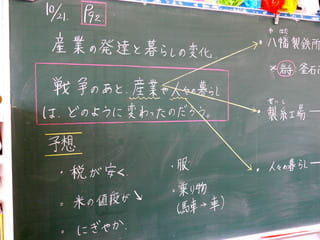 10/21. P92
産業の発達と暮らしの変化
戦争のあと、産業や人々の暮らし
は、どのように変わったのだろう。
予想
・税が安く
・米の値段が↘
・にぎやか
・服
・乗り物
(馬車→車)
やはた
・八幡製鉄所
※岩手 釜石
せいし
・製糸工場
・人々の暮らし